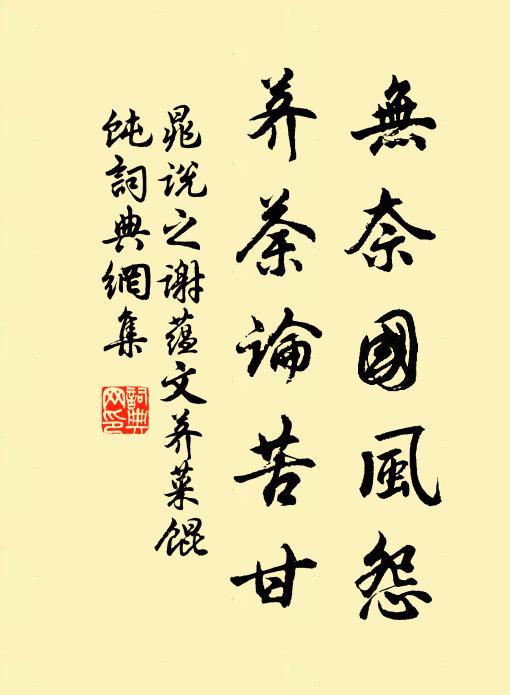 無奈國風怨
荞荼論苦甘
晁説之谢蕴文荞菜馄
饨詞典網集
詞典
网印